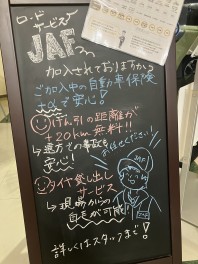 ロードサービス
JAFへ
加入されておりますか?
ご加入中の自動車保険
+αで安心!
けん引の距離が
+20km無料!!
→遠方の事故でも
安心!
お任せください!
JAF
タイヤ貸し出し
サービス
→現場からの
自走が可能!
詳しくはスタッフまで!